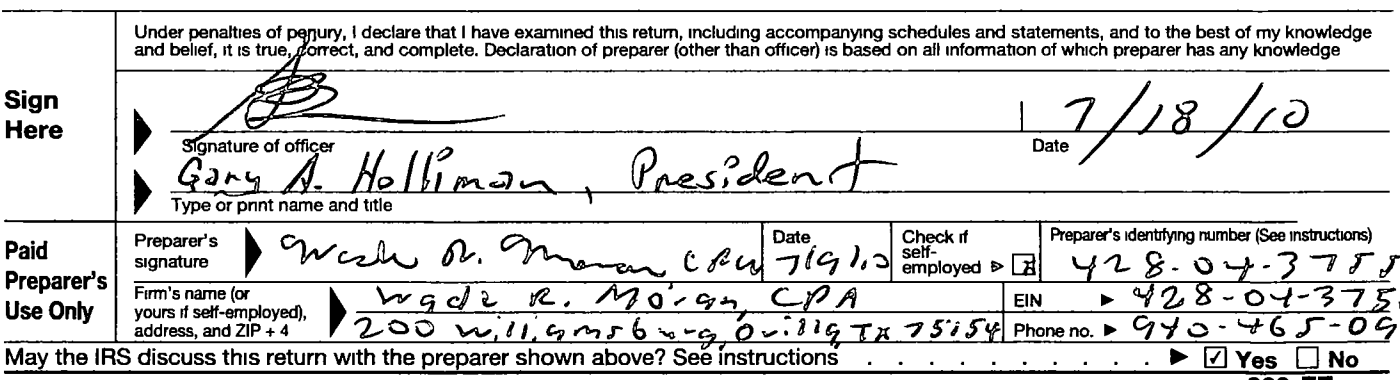 Under penalties of perjury, I declare that I have examined this return, including accompanying schedules and statements, and to the best of my knowledge
and belief, it is true, correct, and complete. Declaration of preparer (other than officer) is based on all information of which preparer has any knowledge
Sign
Here
7/18/10
Signature of officer
Date
Gary A. Holliman, President
Type or print name and title
Paid
Preparer's
Use Only
Preparer's
signature
CPA
Date
7/9/10
Check if
self-
employed
Preparer's identifying number (See instructions)
428-04-3755
Firm's name (or
yours if self-employed),
address, and ZIP + 4
Wade R. Morgan, CPA
200 Williamsburg, Ovilla TX 75154
EIN
428-04-375
Phone no.
940-465-09
May the IRS discuss this return with the preparer shown above? See instructions . . . . . . . . . . . . Yes No